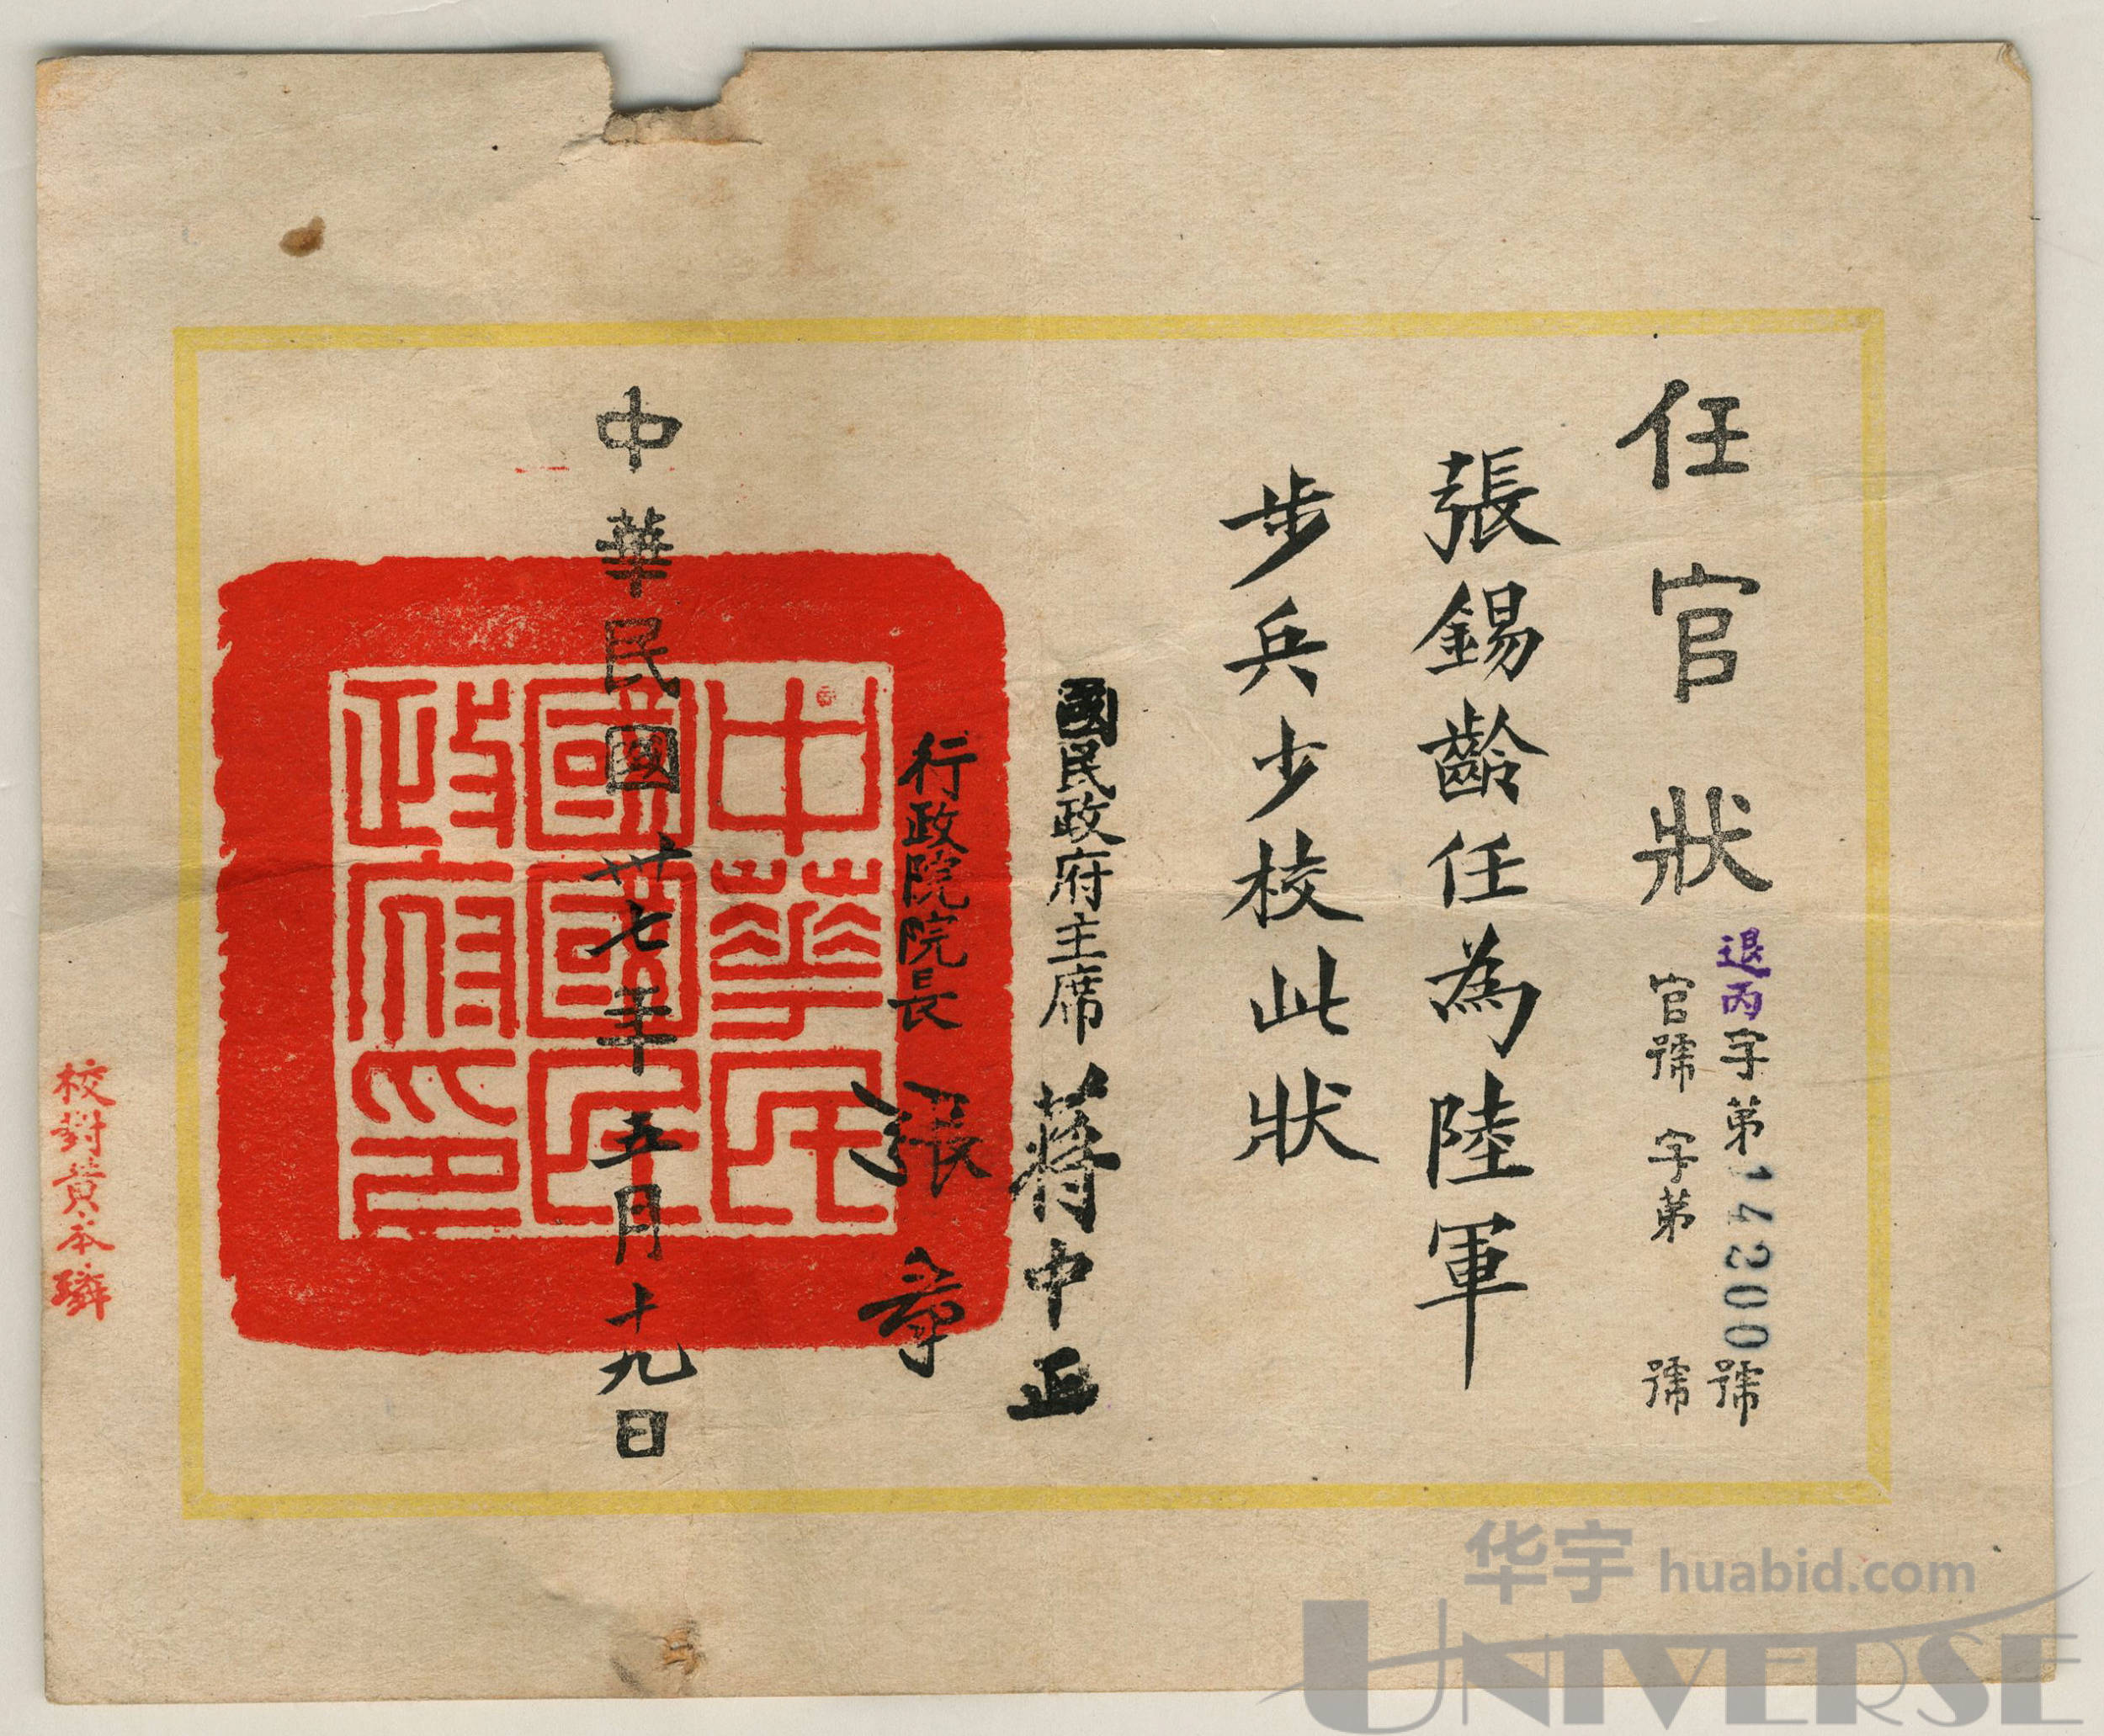 任官狀
退丙字第14200號
官號 字第 號
張錫齡任為陸軍
步兵少校此狀
國民政府主席 蔣中正
行政院院長 張羣
中華民國卅七年五月十九日
中華民
國國民
政府印
校對黄本璘
华宇 huabid.com
UNIVERSE